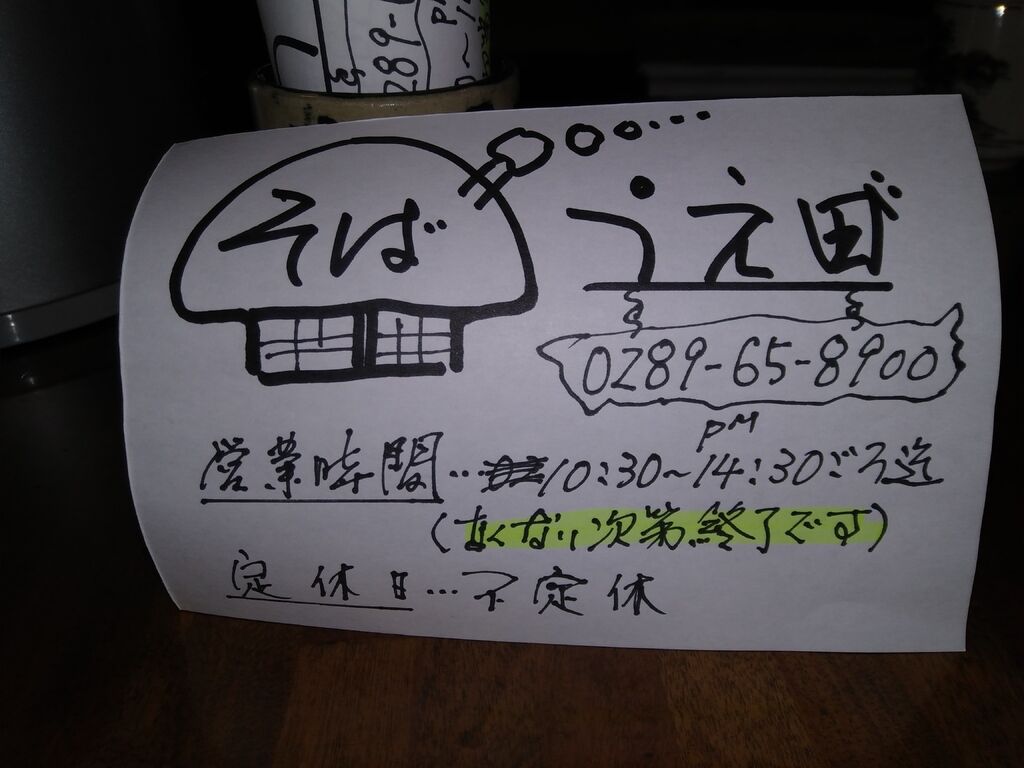 そば
うえ田
0289-65-8900
営業時間…10:30~PM14:30ごろ迄
(なくなり次第終了です)
定休日…不定休